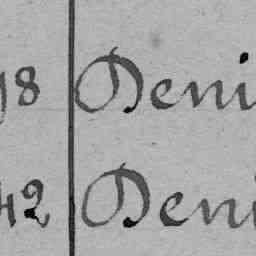 98 Deni
42 Deni